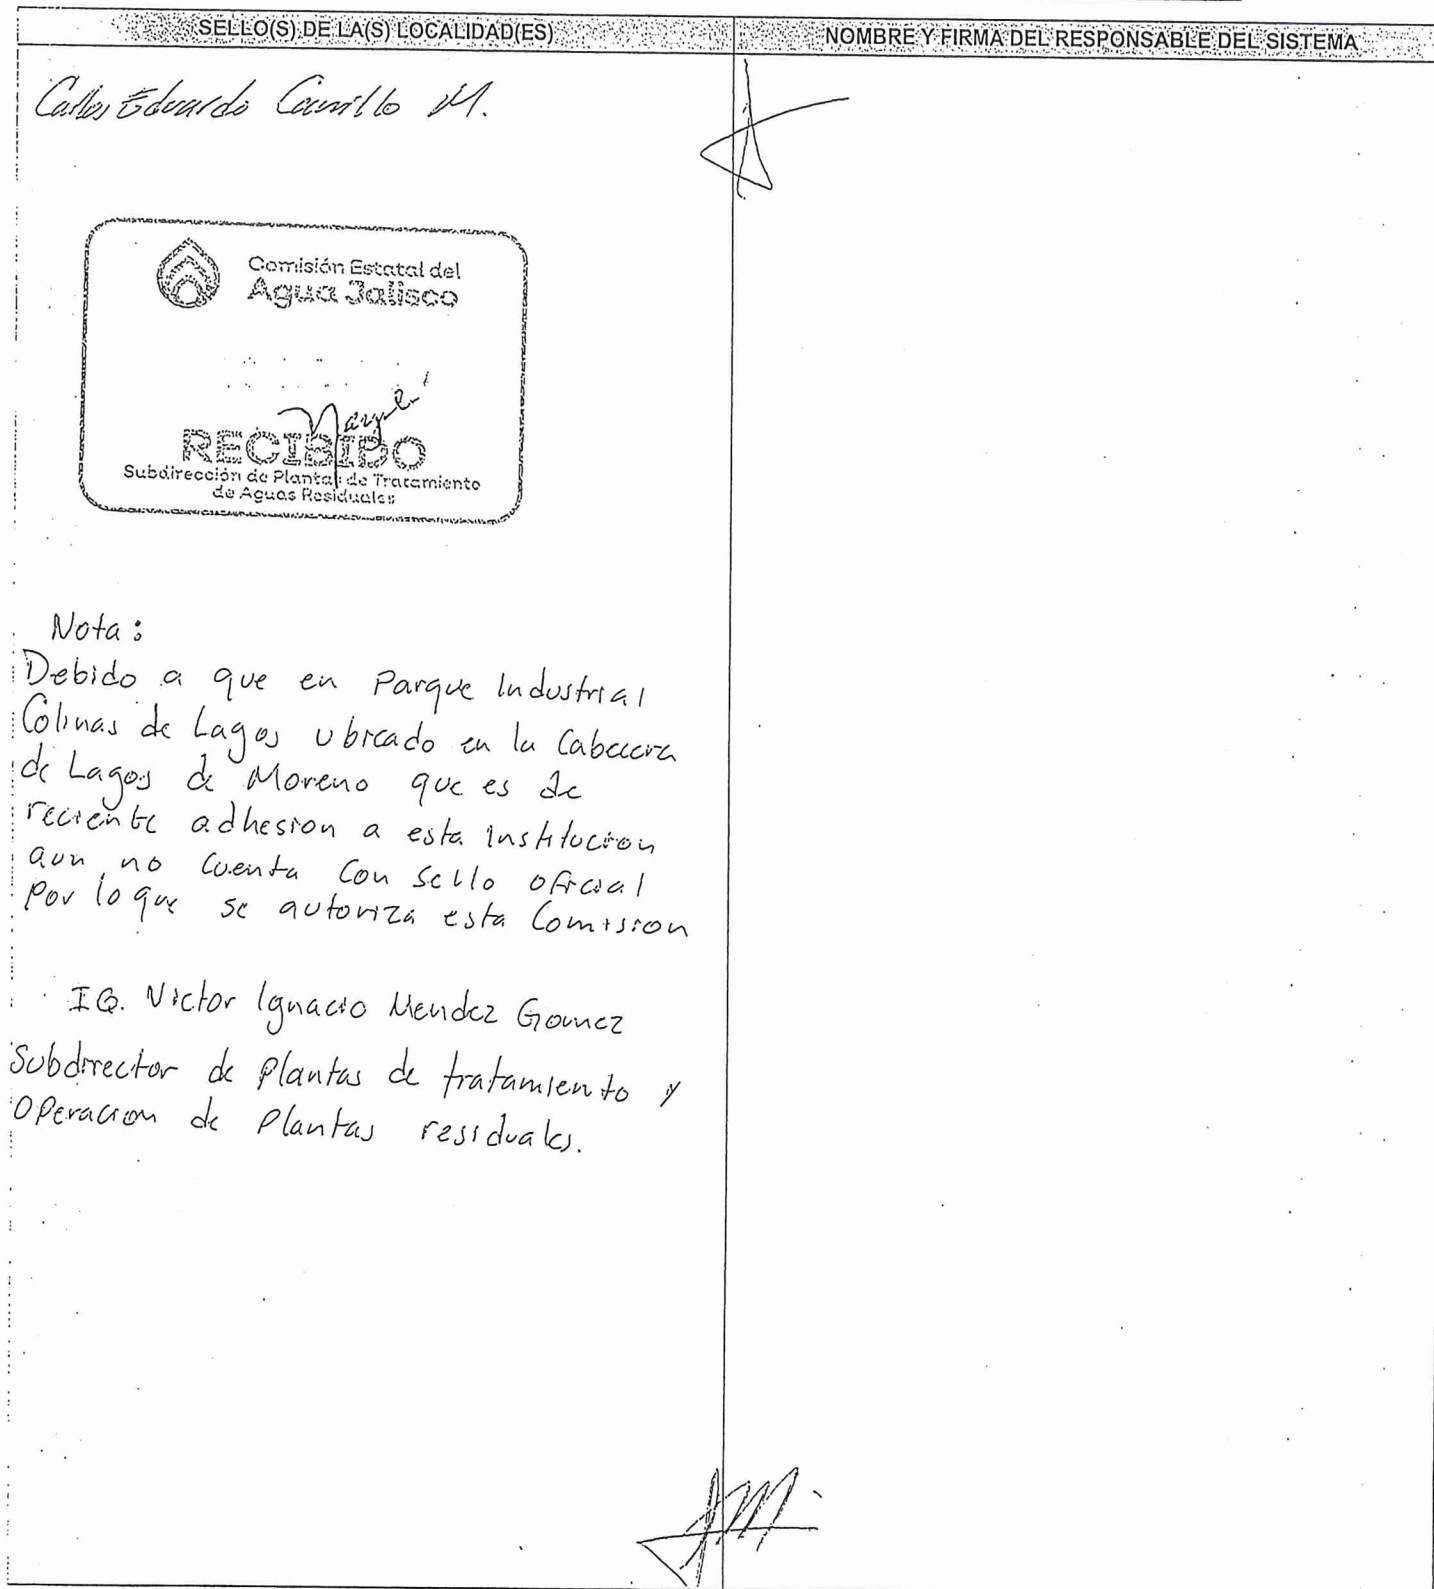 SELLO(S) DE LA(S) LOCALIDAD(ES)
NOMBRE Y FIRMA DEL RESPONSABLE DEL SISTEMA
Carlos Eduardo Carrillo M.
Comisión Estatal del
Agua Jalisco
RECIBIDO
Subdirección de Plantas de Tratamiento
de Aguas Residuales
Nota:
Debido a que en Parque Industrial
Colinas de Lagos ubicado en la Cabecera
de Lagos de Moreno que es de
reciente adhesion a esta institucion
aun no cuenta Con sello oficial
Por lo que se autoriza esta Comision
IQ. Victor Ignacio Mendez Gomez
Subdirector de Plantas de tratamiento y
Operacion de Plantas residuales.